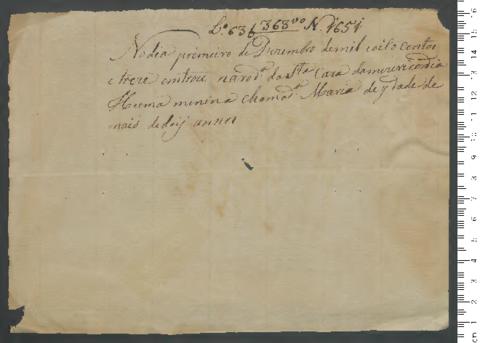 Lº 636 363vº N. 1651
No dia primeiro de Dezembro de mil oito centos
e treze entrou na rod.ª da Stª Casa da mizericordia
Huma menina chamad.ª Maria de ydade de
mais de dois annos